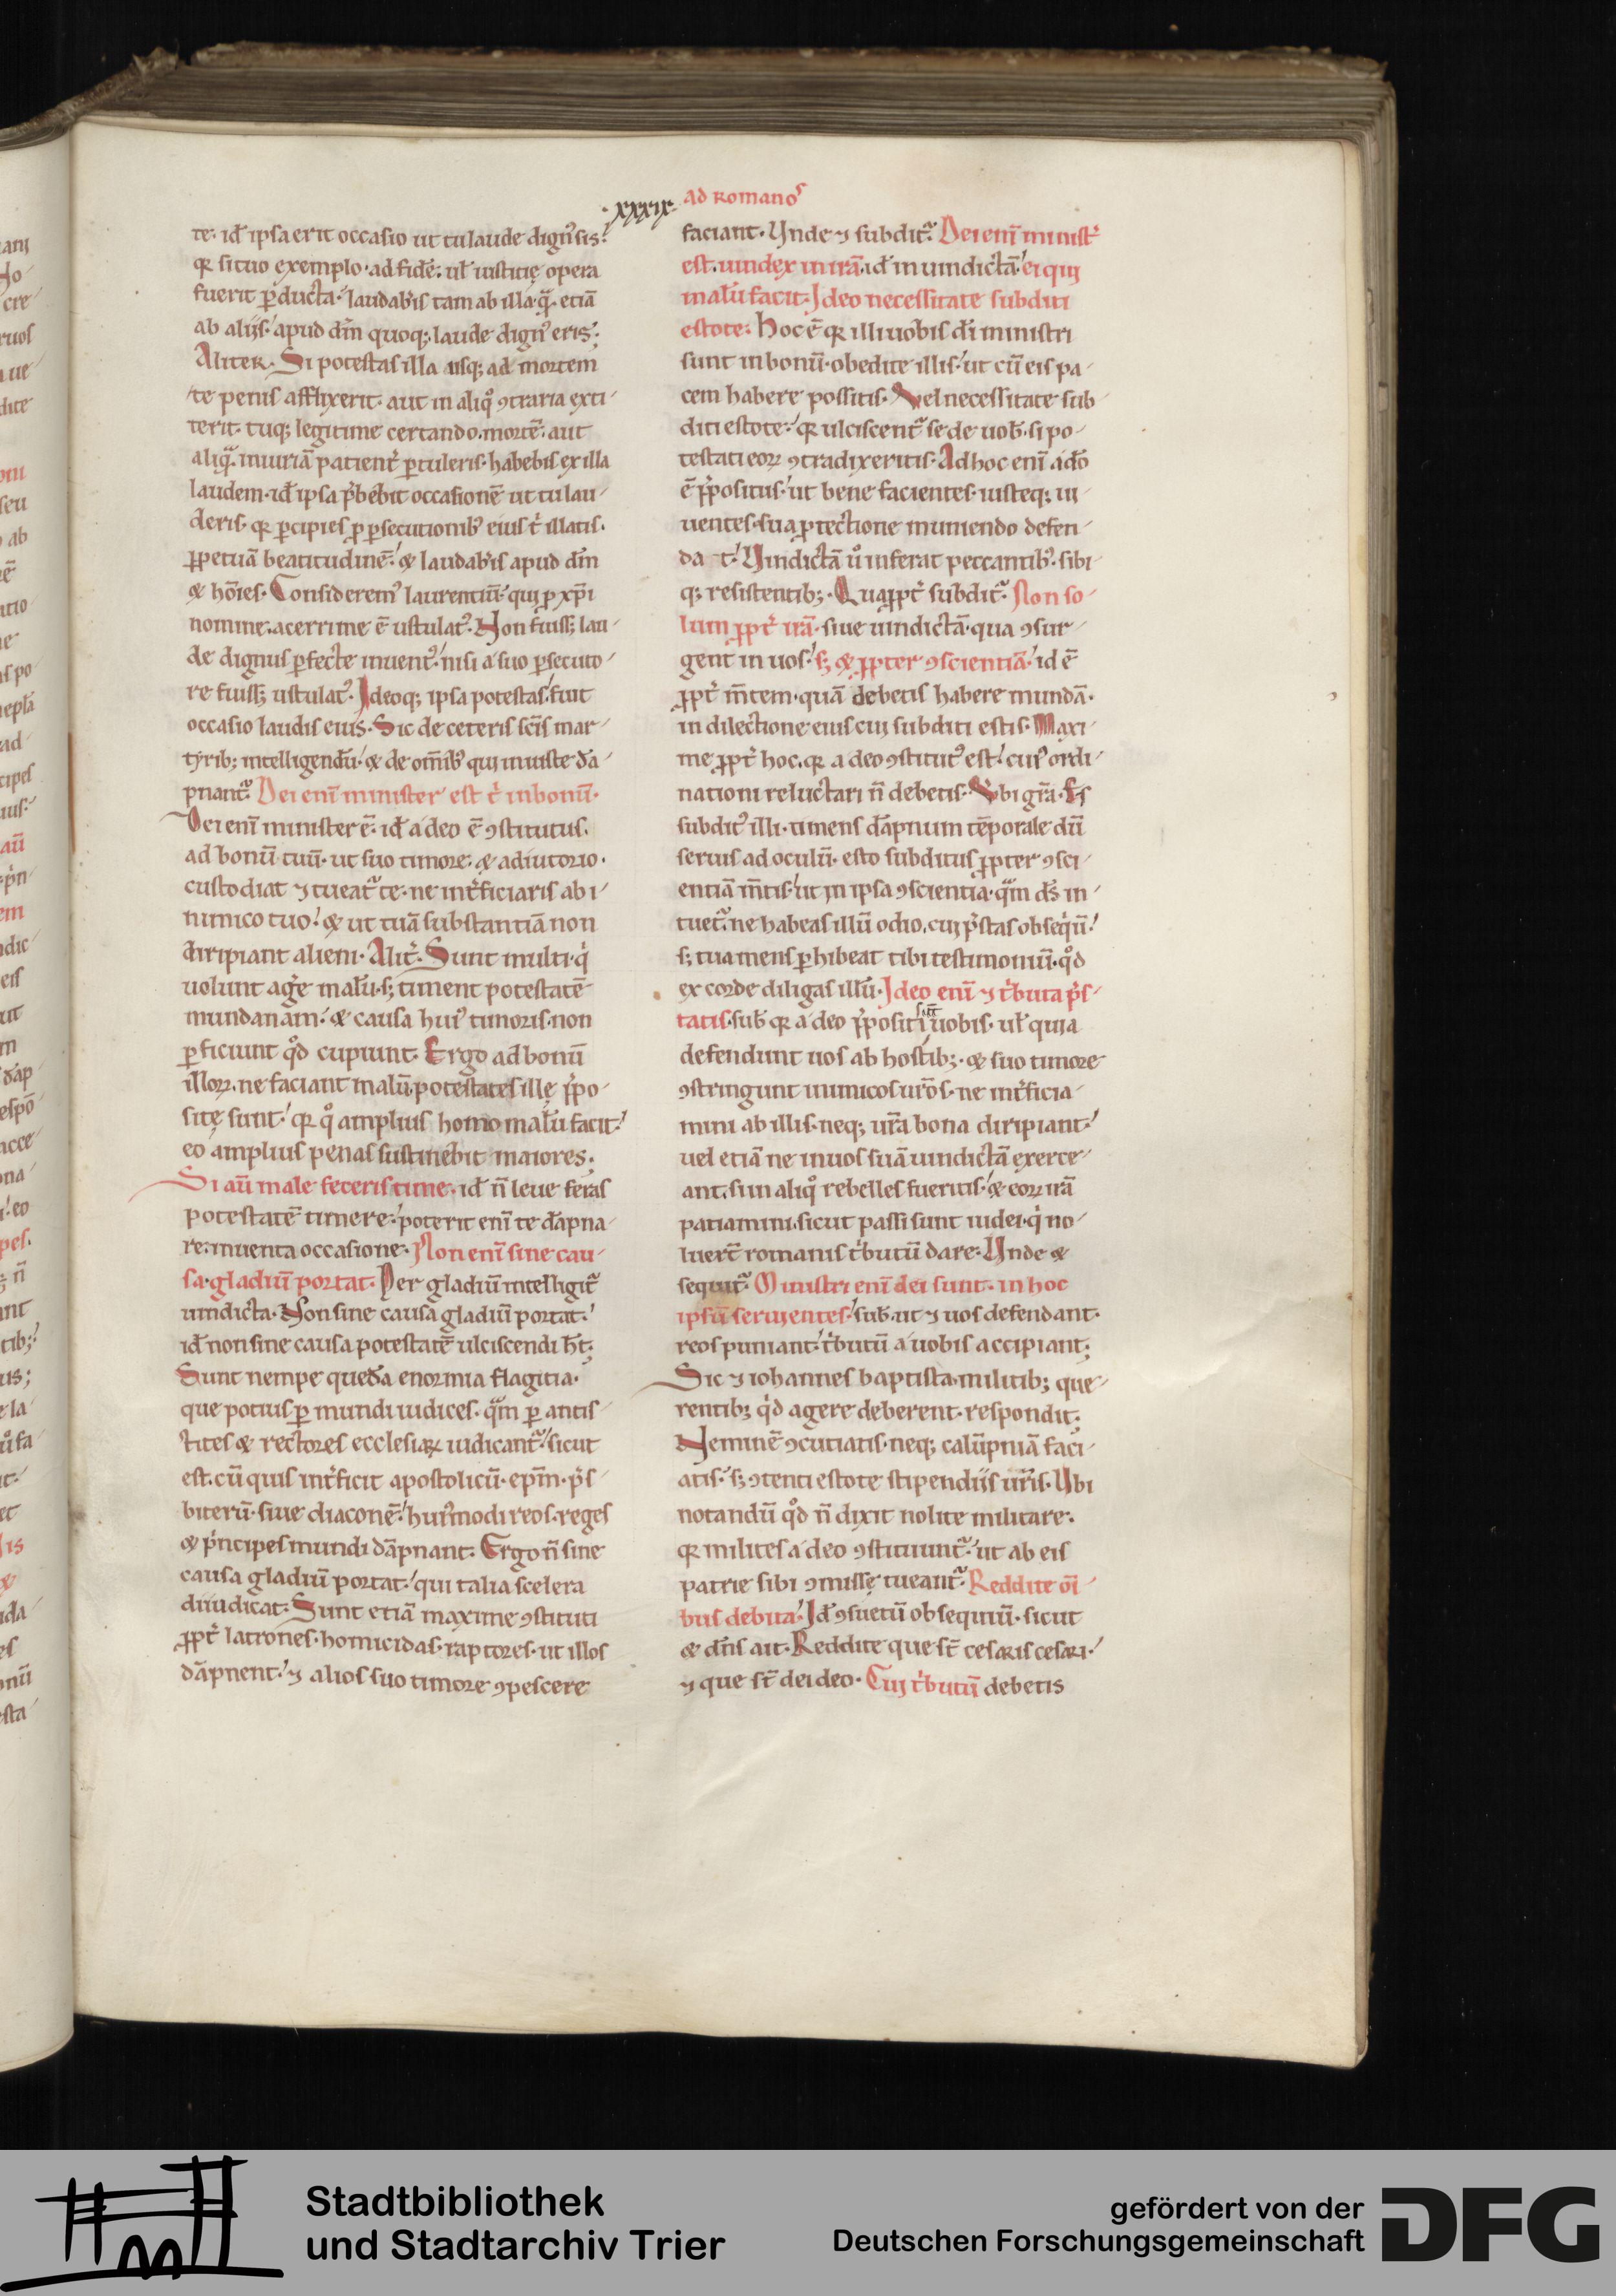 .xxxix.
ad romanos
te. id ipsa erit occasio ut tu laude dign9 sis.
qr si tuo exemplo ad fidē. ul iusticię opera
fuerit pducta. laudabis tam ab illa. qā etiā
ab aliis. apud dm̄ quoq; laude dign9 eris.
Aliter. Si potestas illa usq; ad mortem
te penis afflixerit. aut in aliqo ꝯtraria exti
terit. tuq; legitime certando. mortē. aut
aliqā iniuriā patient ptuleris. habebis ex illa
laudem. id ipsa p̄bebit occasionē ut tu lau
deris. qr pcipies p psecutionib9 eius t illatis.
ppetuā beatitudinē. & laudabis apud dm̄
& hoīes. Consideremus laurentiū qui p xp̄i
nomine. acerrime ē ustulat9. Non fuiss; lau
de dignus pfecte inuent9. nisi a suo psecuto
re fuiss; ustulat9. Ideoq; ipsa potestas fuit
occasio laudis eius. Sic de ceteris scīs mar
tyrib; intelligendū. & de om̄ib9 qui iniuste dā
pnant~ Dei enī minister est t in bonū.
Dei enī minister ē. id a deo ē ꝯstitutus.
ad bonū tuū. ut suo timore. & adiutorio.
custodiat ⁊ tueat~ te. ne int̄ficiaris ab i
nimico tuo. & ut tuā substantiā non
diripiant alieni. Alit̄. Sunt multi. qi
uolunt agē malū. s; timent potestatē
mundanam. & causa hui9 timoris. non
pficiunt qod cupiunt. Ergo ad bonū
illoꝝ. ne faciant malū. potestates ille p̄po
site sunt. qr qo amplius homo malū facit.
eo amplius penas sustinebit maiores.
Si aū male feceris time. id n̄ leue feras
potestatē timere. poterit enī te dāpna
re. inuenta occasione. Non enī sine cau
sa. gladiū portat. Per gladiū intelligit~
uindicta. Non sine causa gladiū portat.
id non sine causa potestatē ulciscendi ht.
Sunt nempe quedā enormia flagitia.
que potius p mundi iudices. qām p antis
tites & rectores ecclesiaꝝ iudicant~ sicut
est. cū quis int̄ficit apostolicū. ep̄m. p̄s
biterū. siue diaconē. hui9modi reos. reges
& p̄ncipes mundi dāpnant. Ergo n̄ sine
causa gladiū portat. qui talia scelera
diiudicat. Sunt etiā maxime ꝯstituti
ppt̄ latrones. homicidas. raptores. ut illos
dāpnent. ⁊ alios suo timore ꝯpescere
faciant. Unde ⁊ subdit~ Dei enī minist̄
est. uindex in irā. id in uindictā. ei qui
malū facit. Ideo necessitate subditi
estote. Hoc ē qr illi uobis dī ministri
sunt in bonū. obedite illis. ut cū eis pa
cem habere possitis. Vel necessitate sub
diti estote. qr ulciscent~ se de uob. si po
testati eoꝝ ꝯtradixeritis. Ad hoc enī a dō
ē p̄positus. ut bene facientes. iusteq; ui
uentes. sua ptectione muniendo defen
da t. Uindictā ů inferat peccantib9. sibi
q; resistentib;. Quappt̄ subdit~ Non so
lum ppt̄ irā. siue uindictā. qua ꝯsur
gent in uos. s; & ppter ꝯscientiā. id ē
ppt̄ m̄tem. quā debetis habere mundā.
in dilectione eius cui subditi estis. Maxi
me ppt̄ hoc. qr a deo ꝯstitut9 est. cui9 ordi
nationi reluctari n̄ debetis. Verbi grā. Es
subdit9 illi. timens dāpnum tēporale dū
seruis ad oculū. esto subditus ppter ꝯsci
entiā m̄tis. ut in ipsa ꝯscientia. qām ds̄ in
tuet~ ne habeas illū odio. cui p̄stas obseqiū.
s; tua mens phibeat tibi testimoniū. qod
ex corde diligas illū. Ideo enī ⁊ tibuta p̄s
tatis. sub qr a deo p̄positi sunt uobis. ul quia
defendunt uos ab hostib;. & suo timore
ꝯstringunt inimicos ur̄os. ne int̄ficia
mini ab illis. neq; ur̄a bona diripiant.
uel etiā ne in uos suā uindictā exerce
ant. si in aliqo rebelles fueritis. & eoꝝ irā
patiamini. sicut passi sunt iudei. qi no
luert̄ romanis tibutū dare. Unde &
sequit~ Ministri enī dei sunt. in hoc
ipsū seruientes. sub. ut ⁊ uos defendant.
reos puniant. tibutū a uobis accipiant.
Sic ⁊ iohannes baptista. militib; que
rentib; qid agere deberent. respondit.
Neminē ꝯcutiatis. neq; calūpniā faci
atis. s; ꝯtenti estote stipendiis ur̄is. Ubi
notandū qod n̄ dixit nolite militare.
qr milites a deo ꝯstituunt~ ut ab eis
patrie sibi ꝯmisse tueant~ Reddite oī
bus debita. Id ꝯsuetū obsequiū. sicut
& dn̄s ait. Reddite que st̄ cesaris cesari.
⁊ que st̄ dei deo. Cui tibutū debetis
Stadtbibliothek
und Stadtarchiv Trier
gefördert von der
Deutschen Forschungsgemeinschaft
DFG